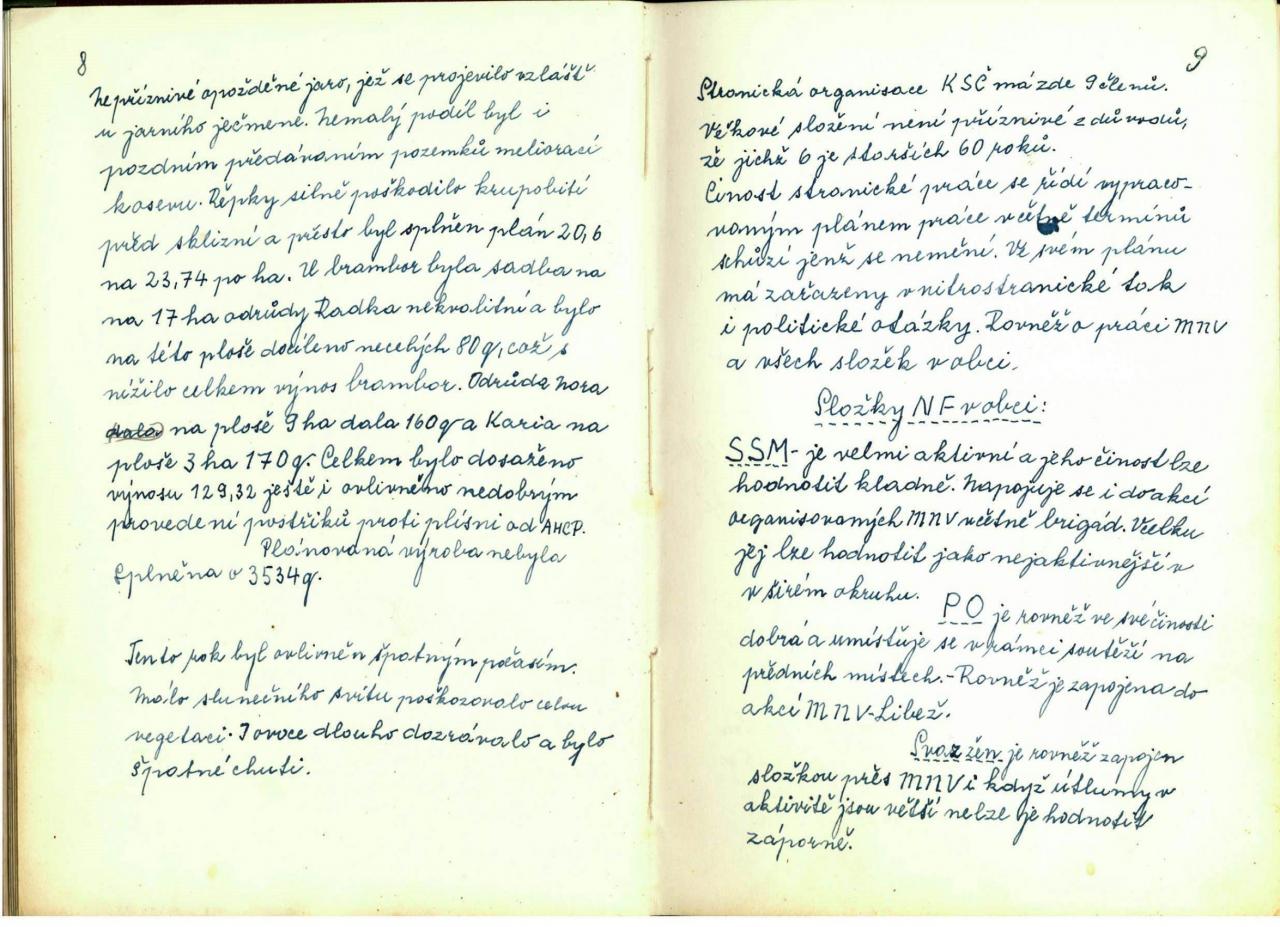 8
Nepříznivé opožděné jaro, jež se projevilo vzláště
u jarního ječmene. Nemalý podíl byl i
pozdním předáváním pozemků meliorací
k osevu. Řepky silně poškodilo krupobití
před sklizní a přesto byl splněn plán 20,6
na 23,74 po ha. U brambor byla sadba na
na 17 ha odrůdy Radka nekvalitní a bylo
na této ploše docíleno necelých 80 q, což s
nížilo celkem výnos brambor. Odrůda Nora
dala na ploše 9 ha dala 160 q a Karia na
ploše 3 ha 170 q. Celkem bylo dosaženo
výnosu 129,32 ještě i ovlivněno nedobrým
provedení postřiků proti plísni od AHCP.
Plánovaná výroba nebyla
splněna o 3534 q.
Tento rok byl ovlivněn špatným počasím.
Málo slunečního svitu poškozovalo celou
vegetaci. I ovoce dlouho dozrávalo a bylo
špatné chuti.
9
Stranická organisace KSČ má zde 9 členů.
Věkové složení není příznivé z důvodů,
že jichž 6 je starších 60 roků.
Činost stranické práce se řídí vypraco-
vaným plánem práce včetně termínů
schůzí jenž se nemění. Ve svém plánu
má zařazeny vnitrostranické tak
i politické otázky. Rovněž o práci MNV
a všech složek v obci.
Složky NF v obci:
SSM - je velmi aktivní a jeho činost lze
hodnotit kladně. Napojuje se i do akcí
organisovaných MNV včetně brigád. Vcelku
jej lze hodnotit jako nejaktivnější v
v širém okruhu.
PO je rovněž ve své činosti
dobrá a umisťuje se v rámci soutěží na
předních místech. - Rovněž je zapojena do
akcí MNV - Libež.
Svaz žen je rovněž zapojen
složkou přes MNV i když útlumy v
aktivitě jsou větší nelze je hodnotit
záporně.